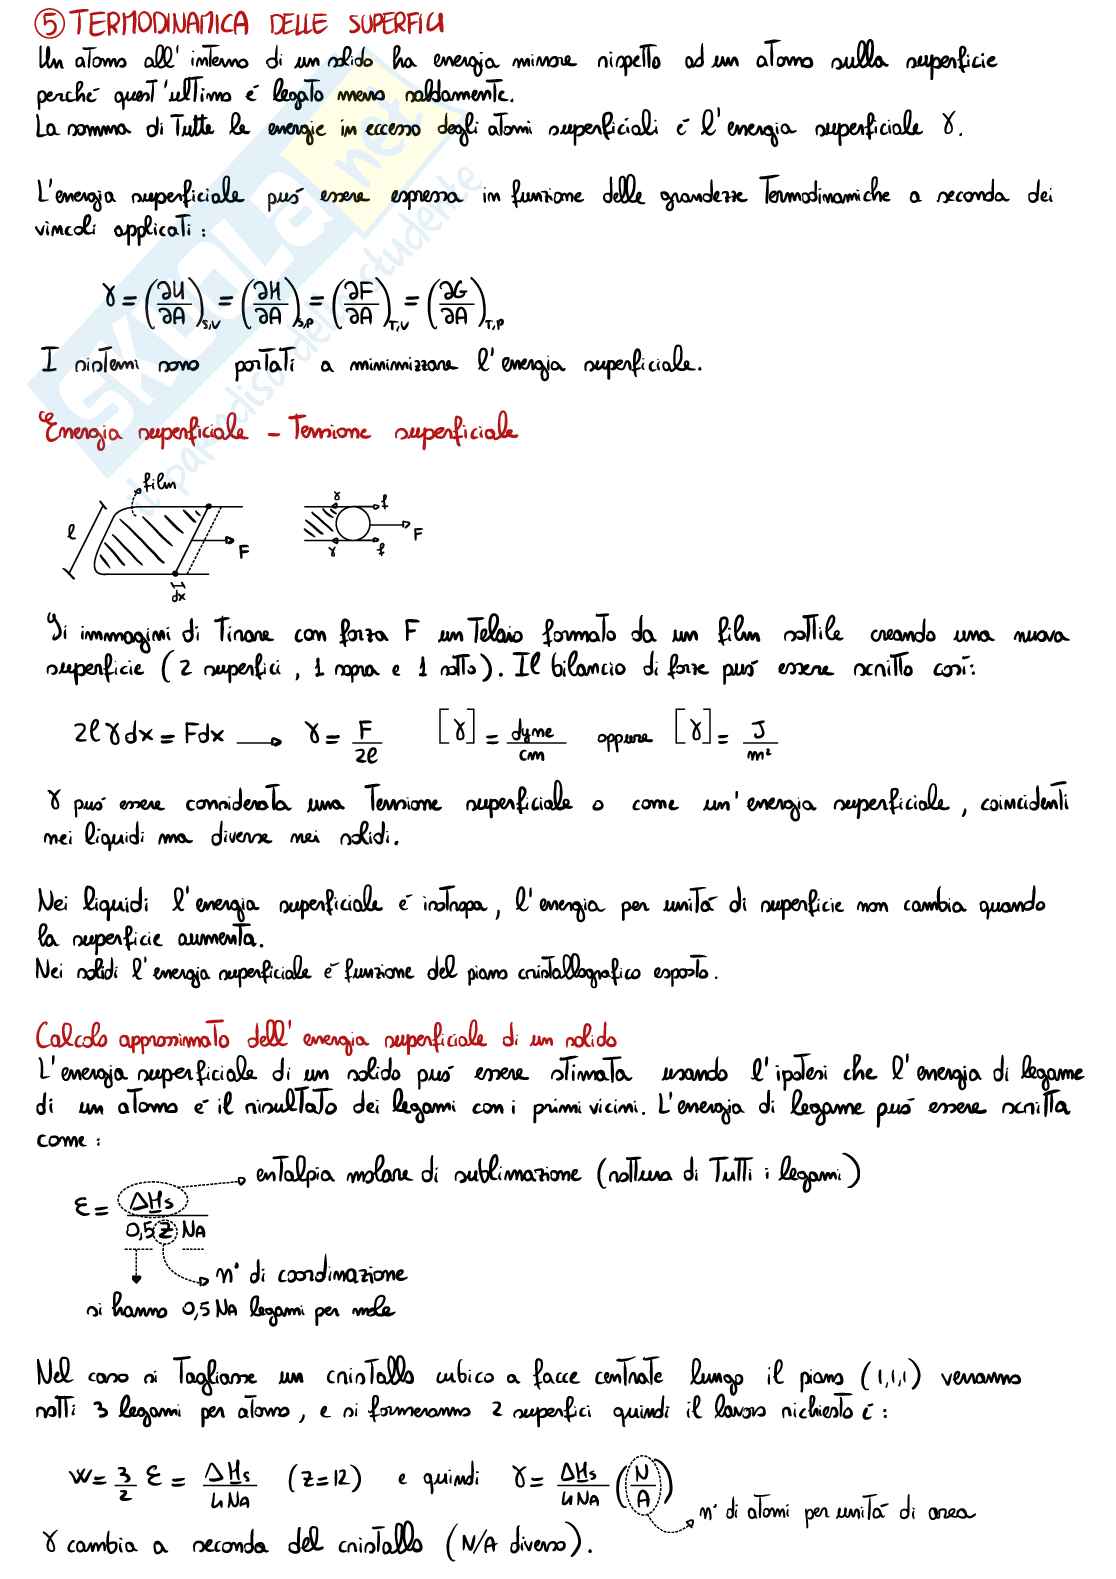 ⑤ TERMODINAMICA DELLE SUPERFICI
Un atomo all'interno di un solido ha energia minore rispetto ad un atomo sulla superficie
perché quest'ultimo é legato meno saldamente.
La somma di tutte le energie in eccesso degli atomi superficiali é l'energia superficiale γ.
L'energia superficiale puó essere espressa in funzione delle grandezze termodinamiche a seconda dei
vincoli applicati:
γ = (∂U/∂A)S,V = (∂H/∂A)S,P = (∂F/∂A)T,V = (∂G/∂A)T,P
I sistemi sono portati a minimizzare l'energia superficiale.
Energia superficiale - Tensione superficiale
film
l
F
dx
γ f
F
γ f
Si immagini di tirare con forza F un telaio formato da un film sottile creando una nuova
superficie (2 superfici, 1 sopra e 1 sotto). Il bilancio di forze puó essere scritto cosí:
2lγdx = Fdx → γ = F/2l [γ] = dyne/cm oppure [γ] = J/m²
γ puó essere considerata una tensione superficiale o come un'energia superficiale, coincidenti
nei liquidi ma diverse nei solidi.
Nei liquidi l'energia superficiale é isotropa, l'energia per unitá di superficie non cambia quando
la superficie aumenta.
Nei solidi l'energia superficiale é funzione del piano cristallografico esposto.
Calcolo approssimato dell'energia superficiale di un solido
L'energia superficiale di un solido puó essere stimata usando l'ipotesi che l'energia di legame
di un atomo é il risultato dei legami con i primi vicini. L'energia di legame puó essere scritta
come:
entalpia molare di sublimazione (rottura di tutti i legami)
ε = ΔHs/0,5 Z NA
n° di coordinazione
si hanno 0,5 NA legami per mole
Nel caso si tagliasse un cristallo cubico a facce centrate lungo il piano (1,1,1) verranno
rotti 3 legami per atomo, e si formeranno 2 superfici quindi il lavoro richiesto é:
W = 3/2 ε = ΔHs/4NA (Z=12) e quindi γ = ΔHs/4NA (N/A)
n° di atomi per unitá di area
γ cambia a seconda del cristallo (N/A diverso).
SKUOLA.net
il paradiso dello studente